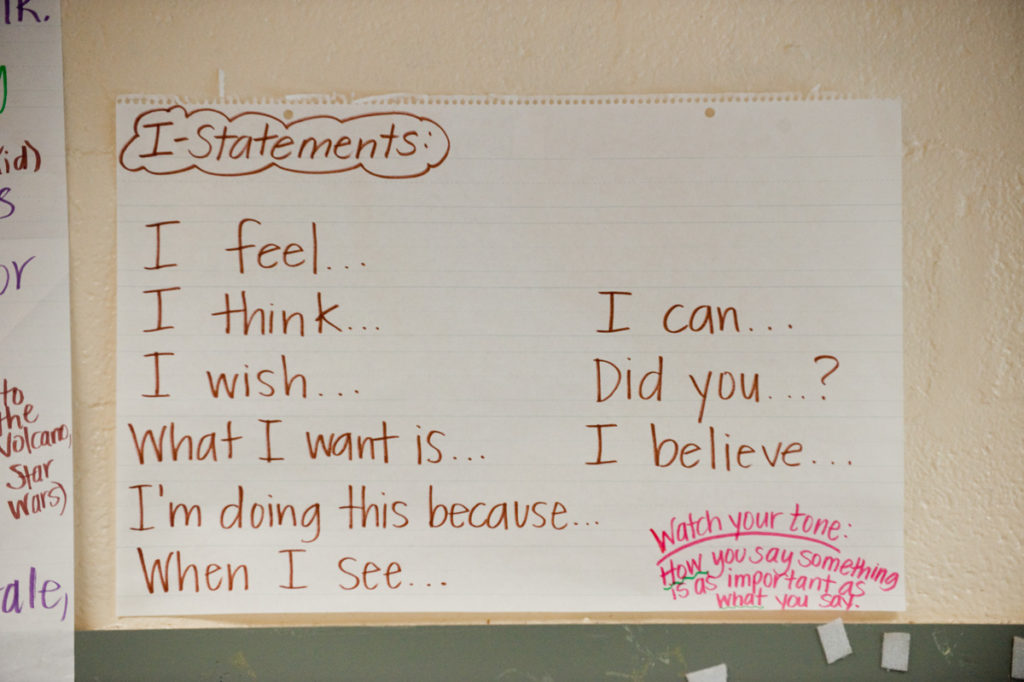 I-Statements:
I feel...
I think...
I wish...
What I want is...
I'm doing this because...
When I see...
I can...
Did you...?
I believe...
Watch your tone:
How you say something
is as important as
what you say.
to
the
Volcano,
Star
Wars)